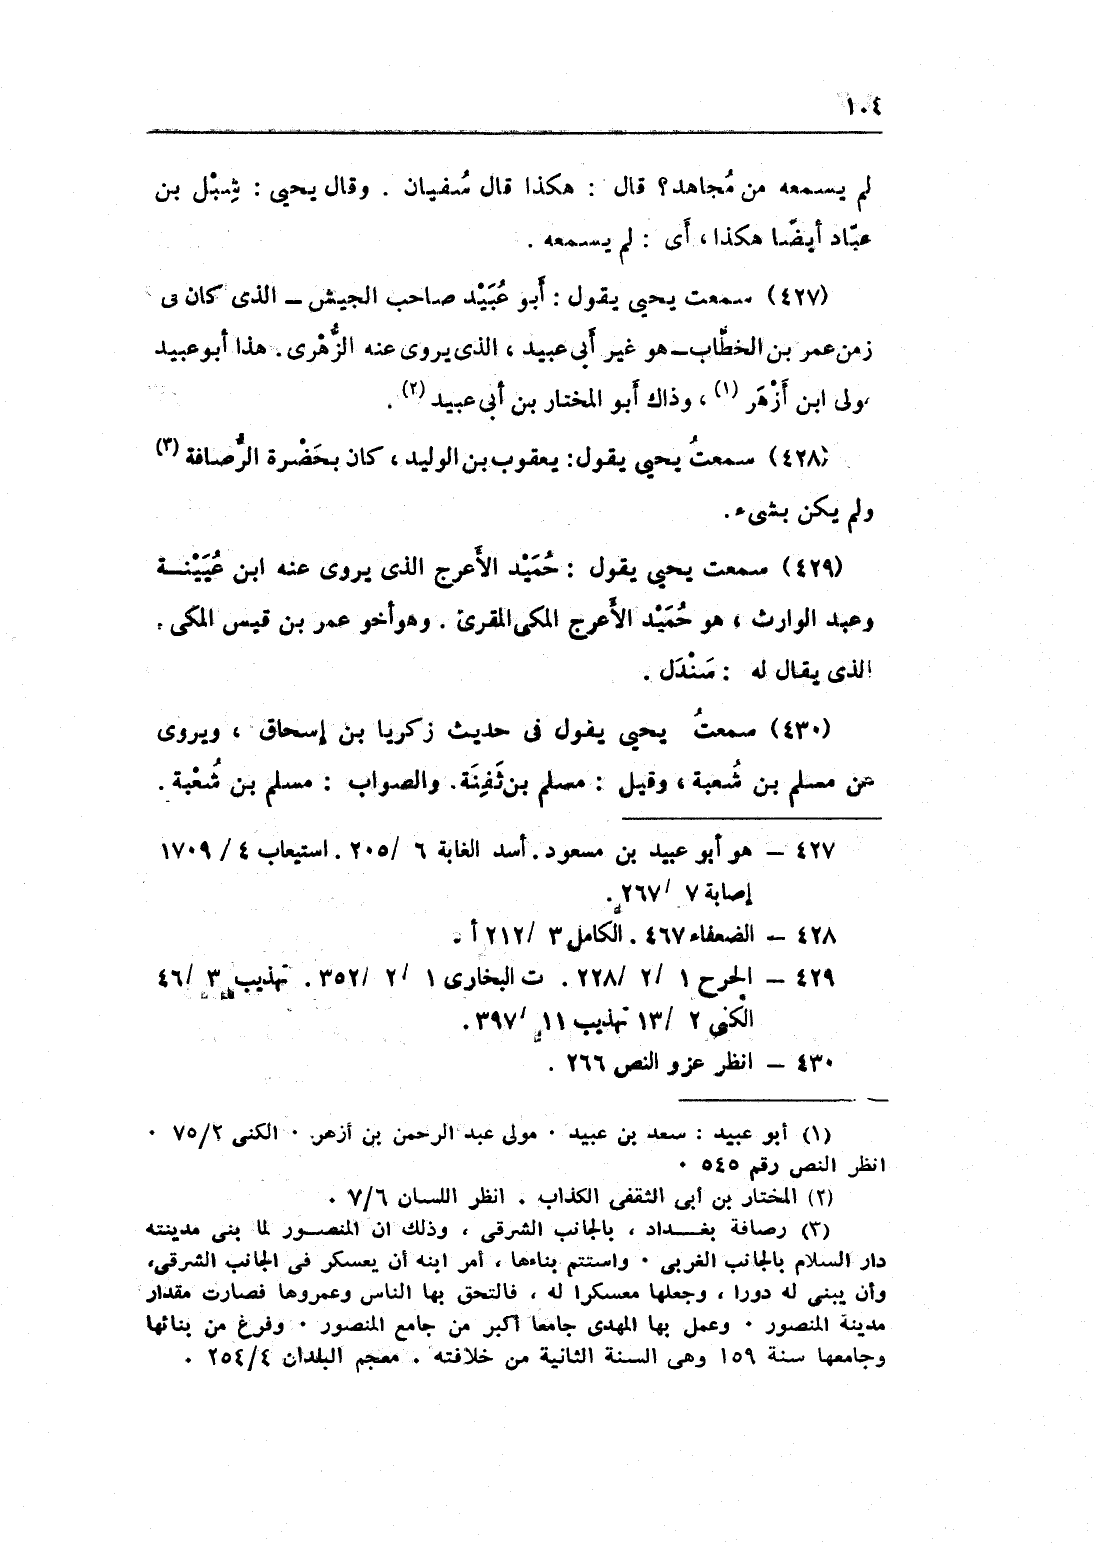 ١٠٤
لم يسمعه من مُجاهد؟ قال : هكذا قال سُفيان . وقال يحيى : شِبْل بن
عبّاد أيضًا هكذا ، أَى : لم يسمعه .
(٤٢٧) سمعت يحيى يقول : أَبو عُبَيْد صاحب الجيش – الذى كان فى
زمن عمر بن الخطّاب – هو غير أَبى عبيد ، الذى يروى عنه الزُّهْرى . هذا أبو عبيد
مولى ابن أَزْهَر (١) ، وذاك أَبو المختار بن أبى عبيد (٢) .
(٤٢٨) سمعتُ يحيى يقول : يعقوب بن الوليد ، كان بحَضْرة الرُّصافة (٣)
ولم يكن بشىء .
(٤٢٩) سمعت يحيى يقول : حُمَيْد الأَعرج الذى يروى عنه ابن عُيَيْنــة
وعبد الوارث ، هو حُمَيْد الأَعرج المكى المقرئ . وهو أخو عمر بن قيس المكى .
الذى يقال له : سَنْدَل .
(٤٣٠) سمعتُ يحيى يقول فى حديث زكريا بن إسحاق ، ويروى
عن مسلم بن شُعبة ، وقيل : مسلم بن ثَفِنَة . والصواب : مسلم بن شُعْبة .
٤٢٧ – هو أبو عبيد بن مسعود . أسد الغابة ٦ /٢٠٥ . استيعاب ٤ / ١٧٠٩
إصابة ٧ /٢٦٧ .
٤٢٨ – الضعفاء ٤٦٧ . الكامل ٣ /٢١٢ أ .
٤٢٩ – الجرح ١ /٢ /٢٢٨ . ت البخارى ١ /٢ /٣٥٢ . تهذيب ٣ /٤٦
الكنى ٢ /١٣ تهذيب ١١ /٣٩٧ .
٤٣٠ – انظر عزو النص ٢٦٦ .
(١) أبو عبيد : سعد بن عبيد · مولى عبد الرحمن بن أزهر · الكنى ٧٥/٢ ·
انظر النص رقم ٥٤٥ ·
(٢) المختار بن أبى الثقفى الكذاب . انظر اللسان ٧/٦ .
(٣) رصافة بغــداد ، بالجانب الشرقى ، وذلك ان المنصــور لما بنى مدينته
دار السلام بالجانب الغربى · واستتم بناءها ، أمر ابنه أن يعسكر فى الجانب الشرقى،
وأن يبنى له دورا ، وجعلها معسكرا له ، فالتحق بها الناس وعمروها فصارت مقدار
مدينة المنصور · وعمل بها المهدى جامعا أكبر من جامع المنصور · وفرغ من بنائها
وجامعها سنة ١٥٩ وهى السنة الثانية من خلافته . معجم البلدان ٢٥٤/٤ ·